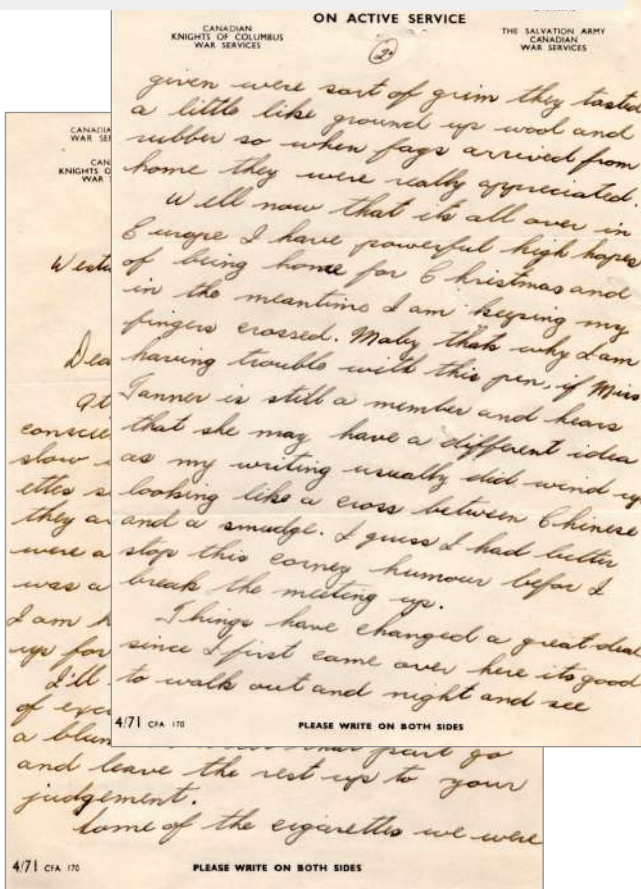 ON ACTIVE SERVICE
CANADIAN
KNIGHTS OF COLUMBUS
WAR SERVICES
THE SALVATION ARMY
CANADIAN
WAR SERVICES
2.
given were sort of grim they tasted
a little like ground up wool and
rubber so when fags arrived from
home they were really appreciated.
Well now that its all over in
Europe I have powerful high hopes
of being home for Christmas and
in the meantime I am keeping my
fingers crossed. Maby thats why I am
having trouble with this pen, if Miss
Tanner is still a member and hears
that she may have a different idea
as my writing usually did wind up
looking like a cross between Chinese
and a smudge. I guess I had better
stop this corney humour befor I
break the meeting up.
Things have changed a great deal
since I first came over here its good
to walk out and night and see
4/71 CFA 170
PLEASE WRITE ON BOTH SIDES
CANADIA
WAR SE
CAN
KNIGHTS O
WAR
Dea
At
conscie
slow
ettes s
they a
were a
was a
I am h
up for
I'll
of exc
a blun that part go
and leave the rest up to your
judgement.
Some of the cigarettes we were
4/71 CFA 170
PLEASE WRITE ON BOTH SIDES